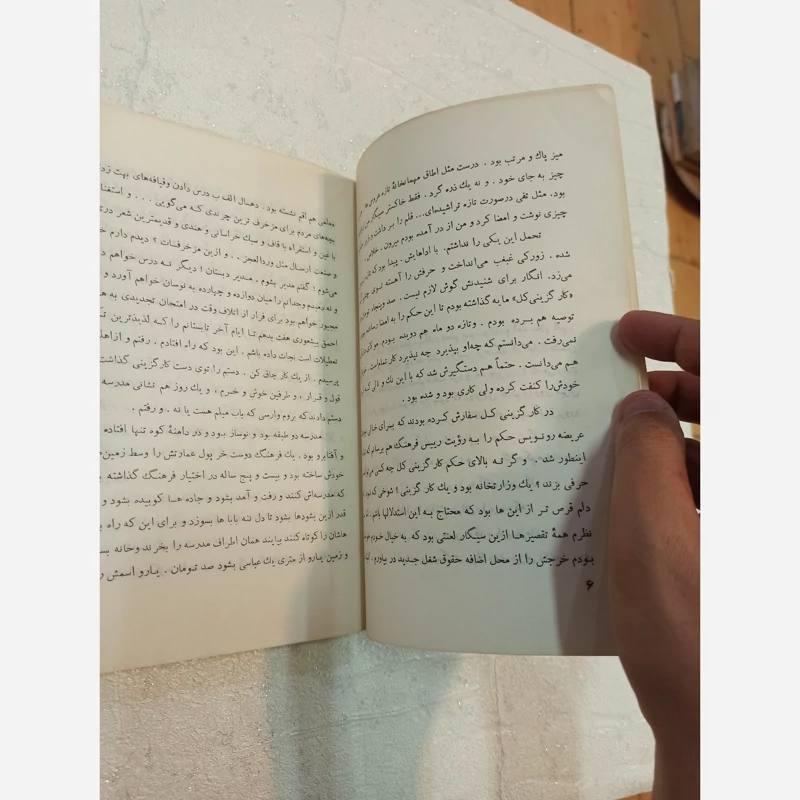 میز پاک و مرتب بود . درست مثل اطاق مهمانخانهٔ تازه عروس‌ها
چیز به جای خود . و نه یك ذره گرد . فقط خاکستر سیگار من
بود. مثل تفی درصورت تازه تراشیده‌ای... قلم را برداشت و
چیزی نوشت و امضا کرد و من از در آمده بودم بیرون . خلاص .
تحمل این یکی را نداشتم. با اداهایش. پیدا بود که
شده . زورکی غبغب می‌انداخت و حرفش را آهسته توی
می‌زد. انگار برای شنیدنش گوش لازم نیست. صد و پنجاه
«کارگزینی کل» مایه گذاشته بودم تا این حکم را به امضا رسانده
توصیه هم بـرده بودم . وتازه دو ماه هم دویده بـودم
نمی‌رفت . می‌دانستم که چه‌او بپذیرد چه نپذیرد کار تمام‌است.
هم می‌دانست . حتماً هم دستگیرش شد که با این نك و نالی که
خودش‌را کنفت کرده ولی کاری بود و شده بود .
در کارگزینی کـل سفارش کرده بودند که بـرای خالی
عریضه رونـویس حکم را بـه رؤیت رییس فرهنگ هم برسانم که
اینطور شد . و گر نـه بالای حکم کارگزینی کل چه کسی می‌توانست
حرفی بزند ؟ یك وزارتخانه بود و یك کارگزینی ! شوخی که نبود .
دلم قرص تـر از این ها بود که محتاج بـه این استدلالها باشم
نظرم همهٔ تقصیرهـا ازین سیگار لعنتی بود که به خیال خـودم
بـودم خرجش را از محل اضافه حقوق شغل جـدید در بیاورم .
۶
معلمی هم اقم نشسته بود . ده‌سال الف ب درس دادن وقیافه‌های بهت
بچه‌های مردم برای مزخرف ترین چرندی کـه می‌گویی . . . و
با غین و استقراء با قاف و سبك خراسانی و هندی و قدیمترین شعر
و صنعت ارسال مثل وردالعجز. . . و ازین مزخرفـات ؟ دیدم دارم
می‌شوم ؛ گفتم مدیر بشوم . مـدیر دبستان ! دیگـر نـه درس خواهم
و نه دمبدم وجدانم را میان دوازده و چهارده به نوسان خواهم آورد و
مجبور خواهم بود برای فرار از اتلاف وقت در امتحان تجدیدی به
احمق بیشعوری هفت بدهم تـا ایام آخر تابستانم را کـه لذیذترین
تعطیلات است نجات داده باشم . این بود که راه افتادم . رفتم و ازاهلش
پرسیدم . ازیك کار چاق کن . دستم را توی دست کارگزینی گذاشت
قول و قـرار ، و طرفین خوش و خـرم ، و یك روز هم نشانی مدرسه
دستم دادندکه بروم وارسی که باب میلم هست یا نه . و رفتم .
مدرسه دو طبقه بود و نوساز بـود و در دامنهٔ کوه تنها افتاده
و آفتابرو بود . یك فرهنگ دوست خر پول عمارتش را وسط زمین‌هـ
خودش ساخته بود و بیست و پنج ساله در اختیار فرهنگ گذاشته
که مدرسه‌اش کنند و رفت و آمد بشود و جاده هـا کوبیده بشود و
قدر ازین بشودها بشود تا دل ننه بابا ها بسوزد و برای این که راه
هاشان را کوتاه کنند بیایند همان اطراف مدرسه را بخرند وخانه
و زمین یـارو از متری یك عباسی بشود صد تـومان . یـارو اسمش